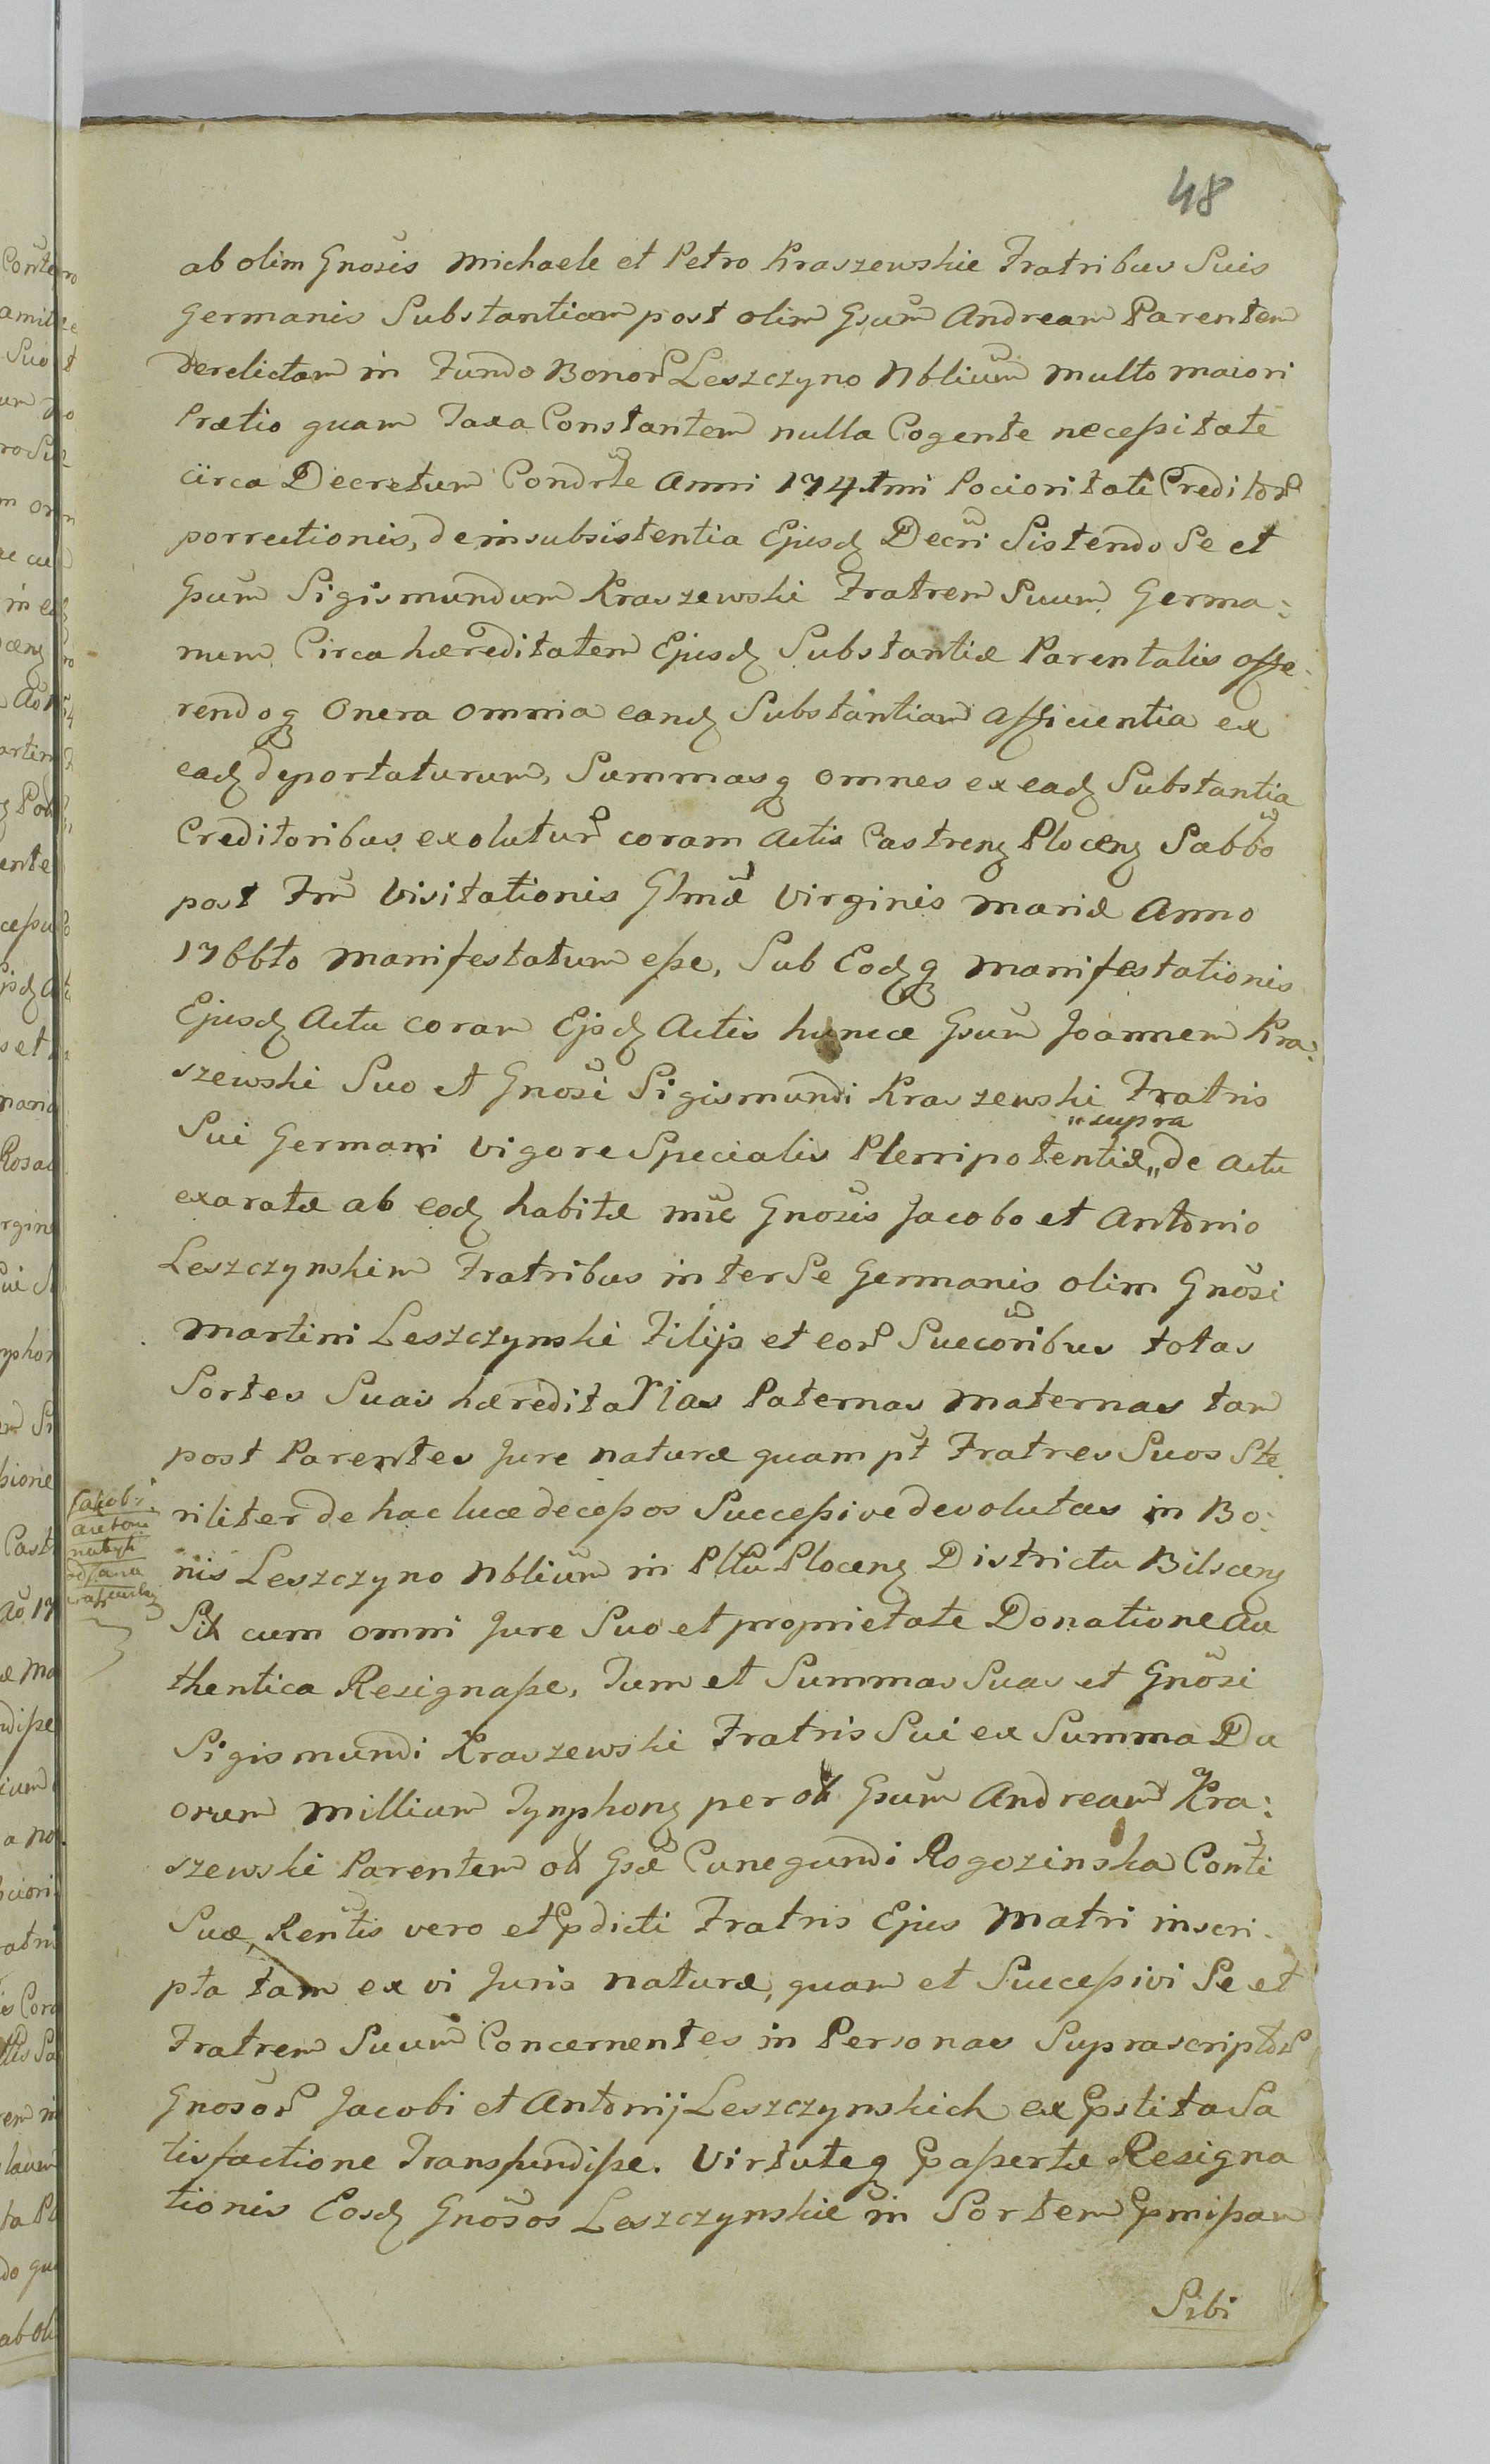 48
ab olim Gnosis Michaele et Petro Kraszewskie Fratribus Suis
Germanis Substantiam post olim Gsum Andream Parentem
derelictam in Fundo Bonor Leszczyno Nblium multo maiori
Prætio quam Taxa Constantem nulla Cogente neceßitate
circa Decretum Condrte Anni 174.tmi Pocioritati Creditor
porrectionis, de insubsistentia Ejusd Decri Sistendo Se et
Gsum Sigismundum Kraszewski Fratrem Suum Germa:
num Circa hæreditatem Ejusd Substantiæ Parentalis offe:
rendoq Onera omnia eand Substantiam afficientia ex
ead deportaturum, Summasq omnes ex ead Substantia
Creditoribus exolutur coram Actis Castren Plocen Sabbo
post Fm Visitationis Glmæ Virginis Mariæ Anno
1766to Manifestatum eße, Sub Eodq Manifestationis
Ejusd Actu coram Ejsd Actis hunce Gsum Joannem Kra:
szewski Suo et Gnosi Sigismundi Kraszewski Fratris
„supra
Sui Germani vigore Specialis Plenipotentiæ„ de actu
exaratæ ab eod habitæ nuc Gnosis Jacobo et Antonio
Leszczynskim Fratribus inter Se Germanis olim Gnosi
Martini Leszczynski Filijs et eor Succoribus totas
Sortes Suas hæreditarias Paternas Maternas tam
post Parentes Jure naturæ quam pt Fratres Suos Ste
riliter de hac luce deceßos Succeßive devolutas in Bo:
nis Leszczyno Nblium in Pltu Plocen Districtu Bilscen
Sit cum omni Jure Suo et proprietate Donatione Au
thentica Resignaße, Tum et Summas Suas et Gnosi
Sigismundi Kraszewski Fratris Sui ex Summa Du
orum Millium Tynphon per ol Gsum Andream Kra:
szewski Parentem ol Gsæ Cunegundi Rogozinska Conti
Suæ, Rentis vero et pdicti Fratris Ejus Matri inscri
pta tam ex vi Juris naturæ, quam et Succeßivi Se et
Fratrem Suum Concernentes in Personas Suprascriptor
Gnosor Jacobi et Antonij Leszczynskich ex pstita Sa
tisfactione Transfundiße. Virtuteq paßertæ Resigna
tionis Eosd Gnosos Leszczynskie in Sortem pmißam
Sibi